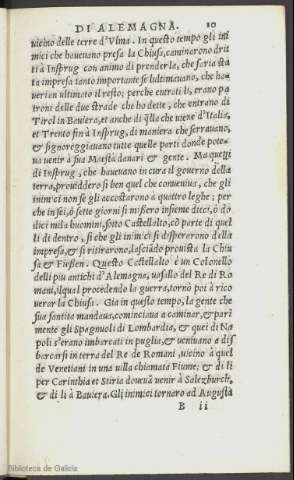 DI ALEMAGNA. 10
uicino delle terre d'Vlma. In questo tempo gli ini
mici che haueuano presa la Chiusa, caminarono drit
ti à Insprug con animo di prenderla, che saria sta
ta impresa tanto importante se l'ultimauano, che ha-
ueriano ultimato il resto; perche entrati lì, erano pa
troni delle due strade che ho dette, che entrano di
Tirol in Bauiera, et anche di q̃lla che uiene d'Italia,
et Trento fin à Insprug, di maniera che serrauano,
& signoreggiauano tutte quelle parti donde pote-
ua uenir à sua Maestà danari & gente. Ma quelli
di Insprug, che haueuano in cura il gouerno della
terra, prouiddero si ben quel che conueniua, che gli
inimici non se gli accostarono a quattro leghe; per
che in sei, ò sette giorni si misero insieme dieci, ò do
dici mila huomini, sotto Castellalto, cō parte di quel
li di dentro, si che gli inimici si disperarono della
impresa, & si ritirarono, lasciãdo prouista la Chiu
sa & Fiessen. Questo Castellalto è un Colonello
delli piu antichi d'Alemagna, uasallo del Re di Ro
mani, ilqual procedendo la guerra, tornò poi à rico
uerar la Chiusa. Gia in questo tempo, la gente che
sua santità mandaua, cominciaua a caminar, & pari
mente gli Spagnuoli di Lombardia, & quei di Na
poli s'erano imbarcati in puglia, & ueniuano a dis
barcarsi in terra del Re de Romani, uicino à quel
de Venetiani in una uilla chiamata Fiume; & di lì
per Carinthia et Stiria doueuã uenir à Salezburch,
& di lì à Bauiera. Gli inimici tornaro ad Augusta
B ii
Biblioteca de Galicia